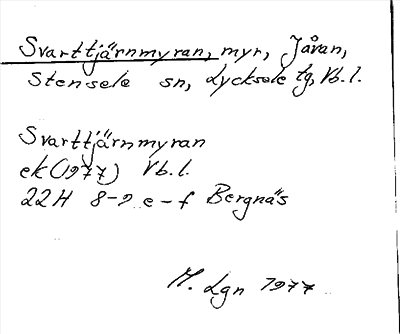 Svarttjärnmyran, myr, Jåran,
Stensele sn, Lycksele tg, Vb. l.
Svarttjärnmyran
ek (1977) Vb. l.
22H 8-9 e-f Bergnäs
M. Lgn 1977